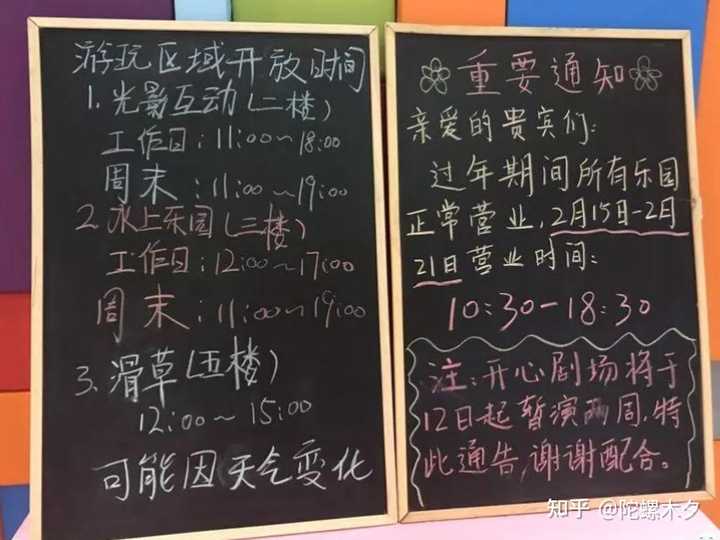 游玩区域开放时间
1.光影互动(二楼)
工作日:11:00~18:00
周末:11:00~19:00
2.水上乐园(三楼)
工作日:12:00~17:00
周末:11:00~19:00
3.滑草(五楼)
12:00~15:00
可能因天气变化
重要通知
亲爱的贵宾们:
过年期间所有乐园
正常营业,2月15日-2月
21日营业时间:
10:30-18:30
注:开心剧场将于
12日起暂演两周,特
此通告,谢谢配合。
知乎 @陀螺木夕